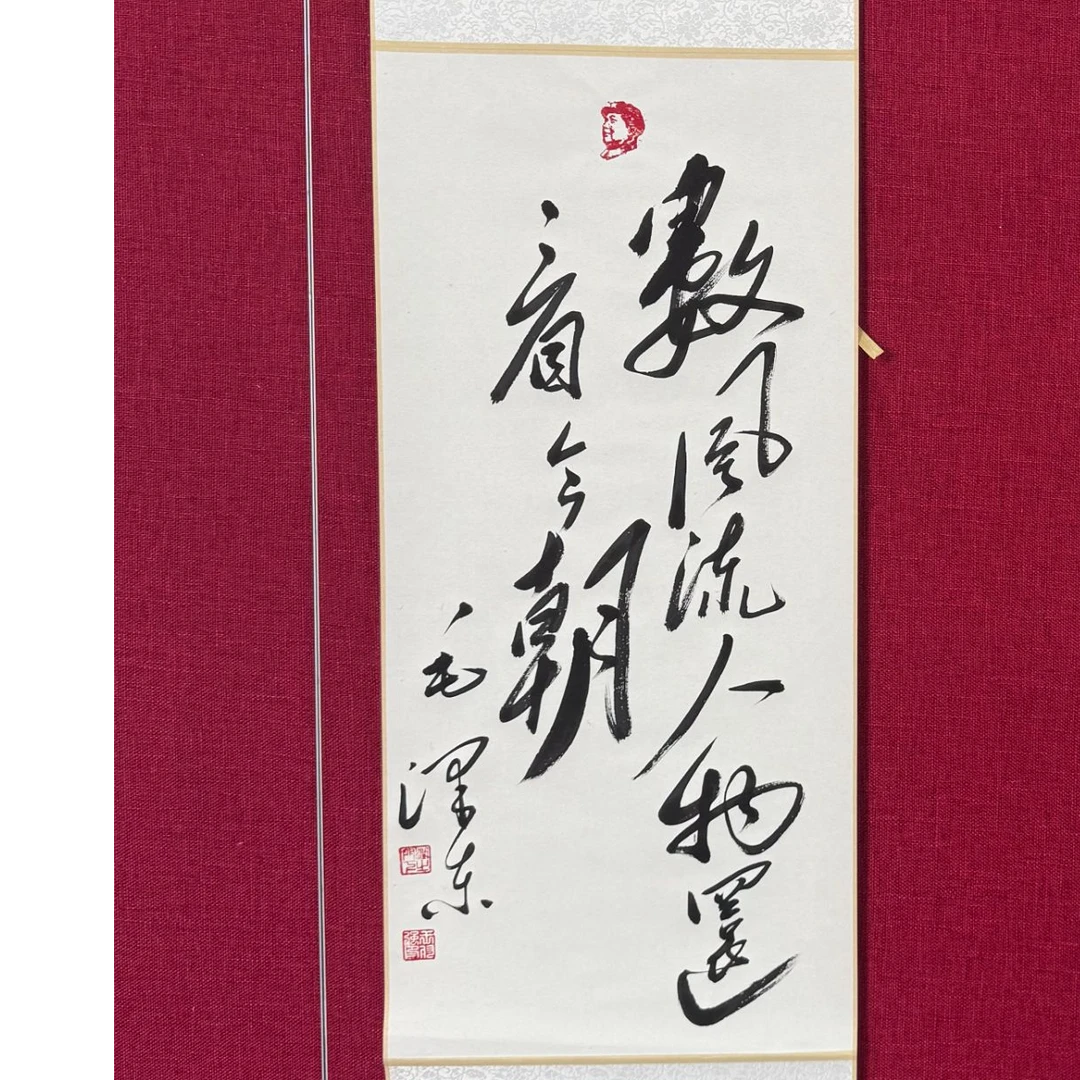 數風流人物還
看今朝
毛澤東